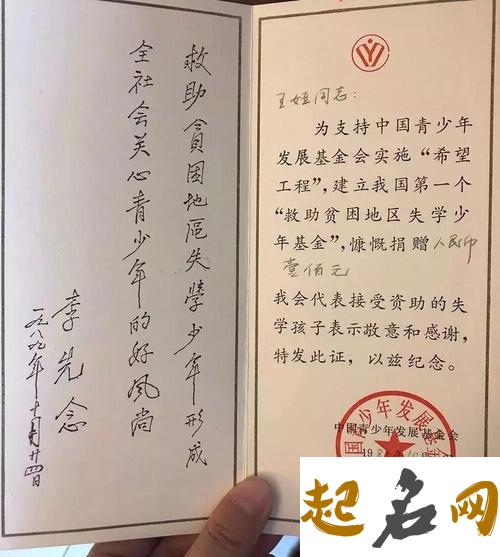 救助貧困地區失學少年形成
全社会关心青少年的好风尚
李先念
一九八九年十月廿四日
王同志：
为支持中国青少年
发展基金会实施“希望
工程”，建立我国第一个
“救助贫困地区失学少
年基金”，慷慨捐赠人民币
壹佰元
我会代表接受资助的失
学孩子表示敬意和感谢，
特发此证，以兹纪念。
中国青少年发展基金会
青少年发展
起名网